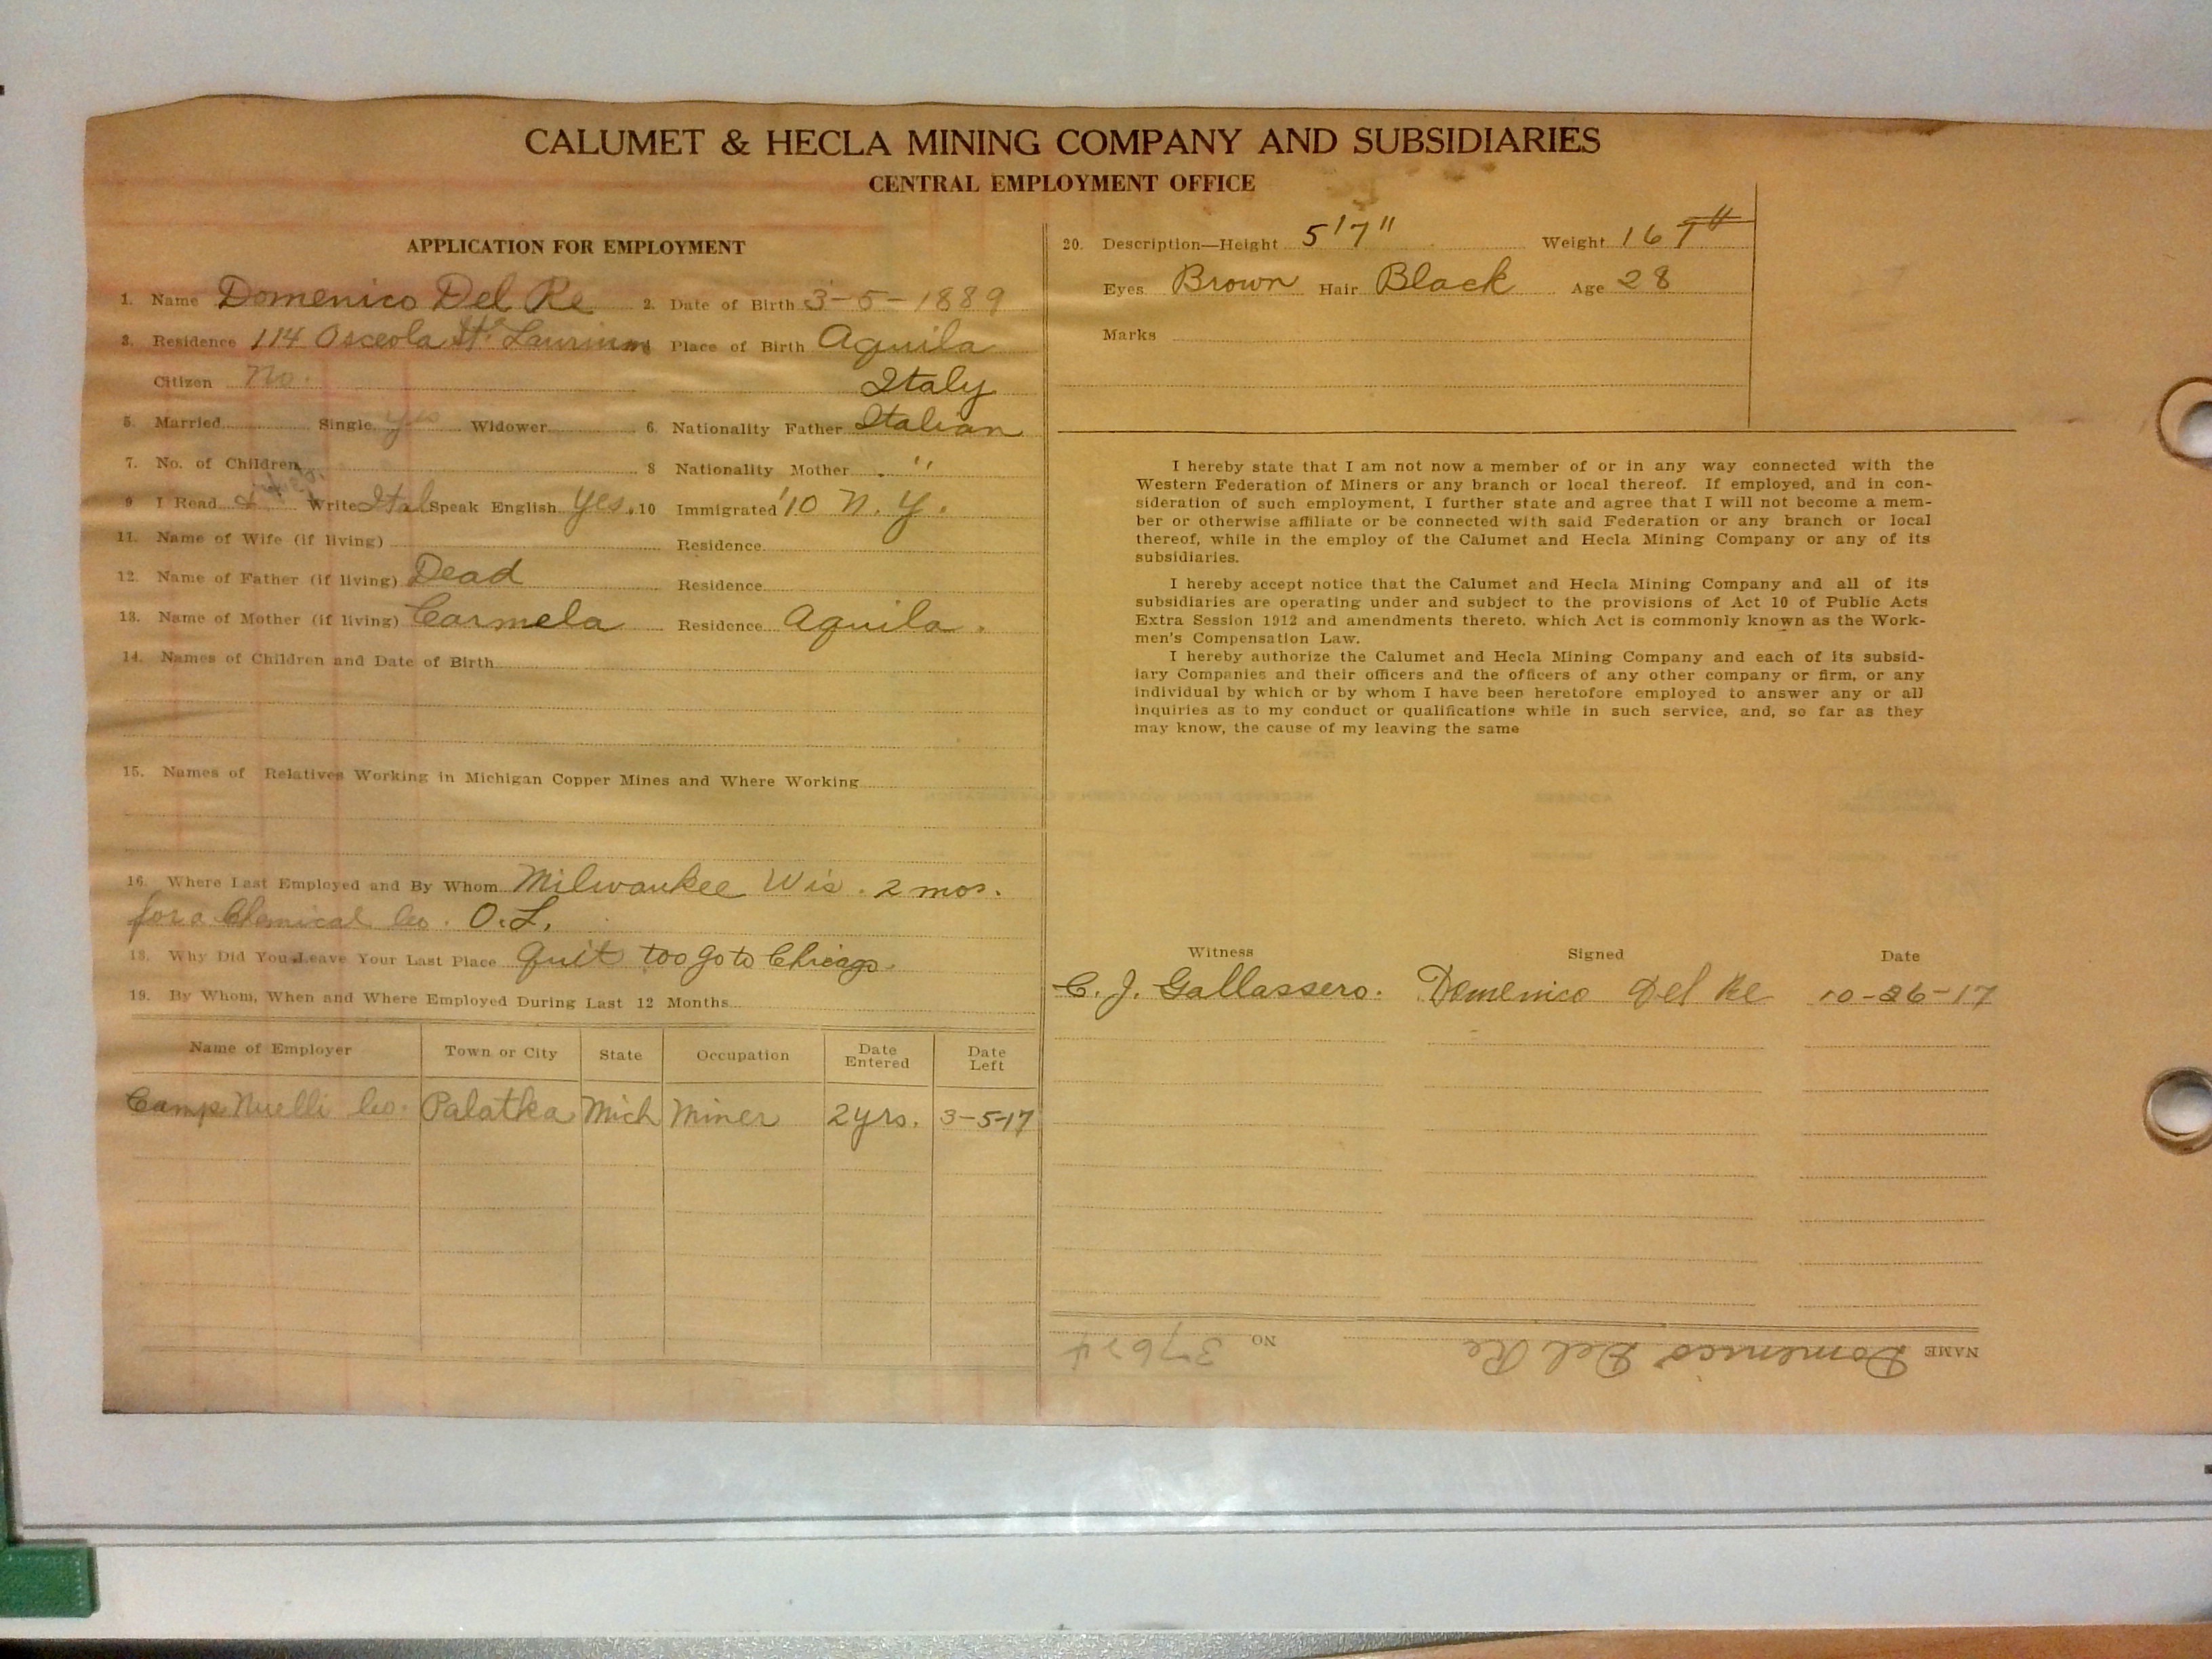 CALUMET & HECLA MINING COMPANY AND SUBSIDIARIES
CENTRAL EMPLOYMENT OFFICE
APPLICATION FOR EMPLOYMENT
1. Name Domenico Del Re 2. Date of Birth 3-5-1889
3. Residence 114 Osceola St. Laurium Place of Birth Aquila
Citizen No. Italy
5. Married Single yes Widower 6. Nationality Father Italian
7. No. of Children 8 Nationality Mother "
9 I Read & Write Ital Speak English yes. 10 Immigrated '10 N.Y.
11. Name of Wife (if living) Residence
12. Name of Father (if living) Dead Residence
13. Name of Mother (if living) Carmela Residence Aquila.
14. Names of Children and Date of Birth
15. Names of Relatives Working in Michigan Copper Mines and Where Working
16. Where Last Employed and By Whom Milwaukee Wis. 2 mos.
for a Chemical Co. O.L.
18. Why Did You Leave Your Last Place Quit too go to Chicago.
19. By Whom, When and Where Employed During Last 12 Months
Name of Employer Town or City State Occupation Date Entered Date Left
Camp Nuelli Co. Palatka Mich Miner 2 yrs. 3-5-17
20. Description—Height 5'7" Weight 167
Eyes Brown Hair Black Age 28
Marks
I hereby state that I am not now a member of or in any way connected with the
Western Federation of Miners or any branch or local thereof. If employed, and in con-
sideration of such employment, I further state and agree that I will not become a mem-
ber or otherwise affiliate or be connected with said Federation or any branch or local
thereof, while in the employ of the Calumet and Hecla Mining Company or any of its
subsidiaries.
I hereby accept notice that the Calumet and Hecla Mining Company and all of its
subsidiaries are operating under and subject to the provisions of Act 10 of Public Acts
Extra Session 1912 and amendments thereto, which Act is commonly known as the Work-
men's Compensation Law.
I hereby authorize the Calumet and Hecla Mining Company and each of its subsid-
iary Companies and their officers and the officers of any other company or firm, or any
individual by which or by whom I have been heretofore employed to answer any or all
inquiries as to my conduct or qualifications while in such service, and, so far as they
may know, the cause of my leaving the same
Witness Signed Date
C. J. Gallassero. Domenico Del Re 10-26-17
NAME Domenico Del Re NO 37624